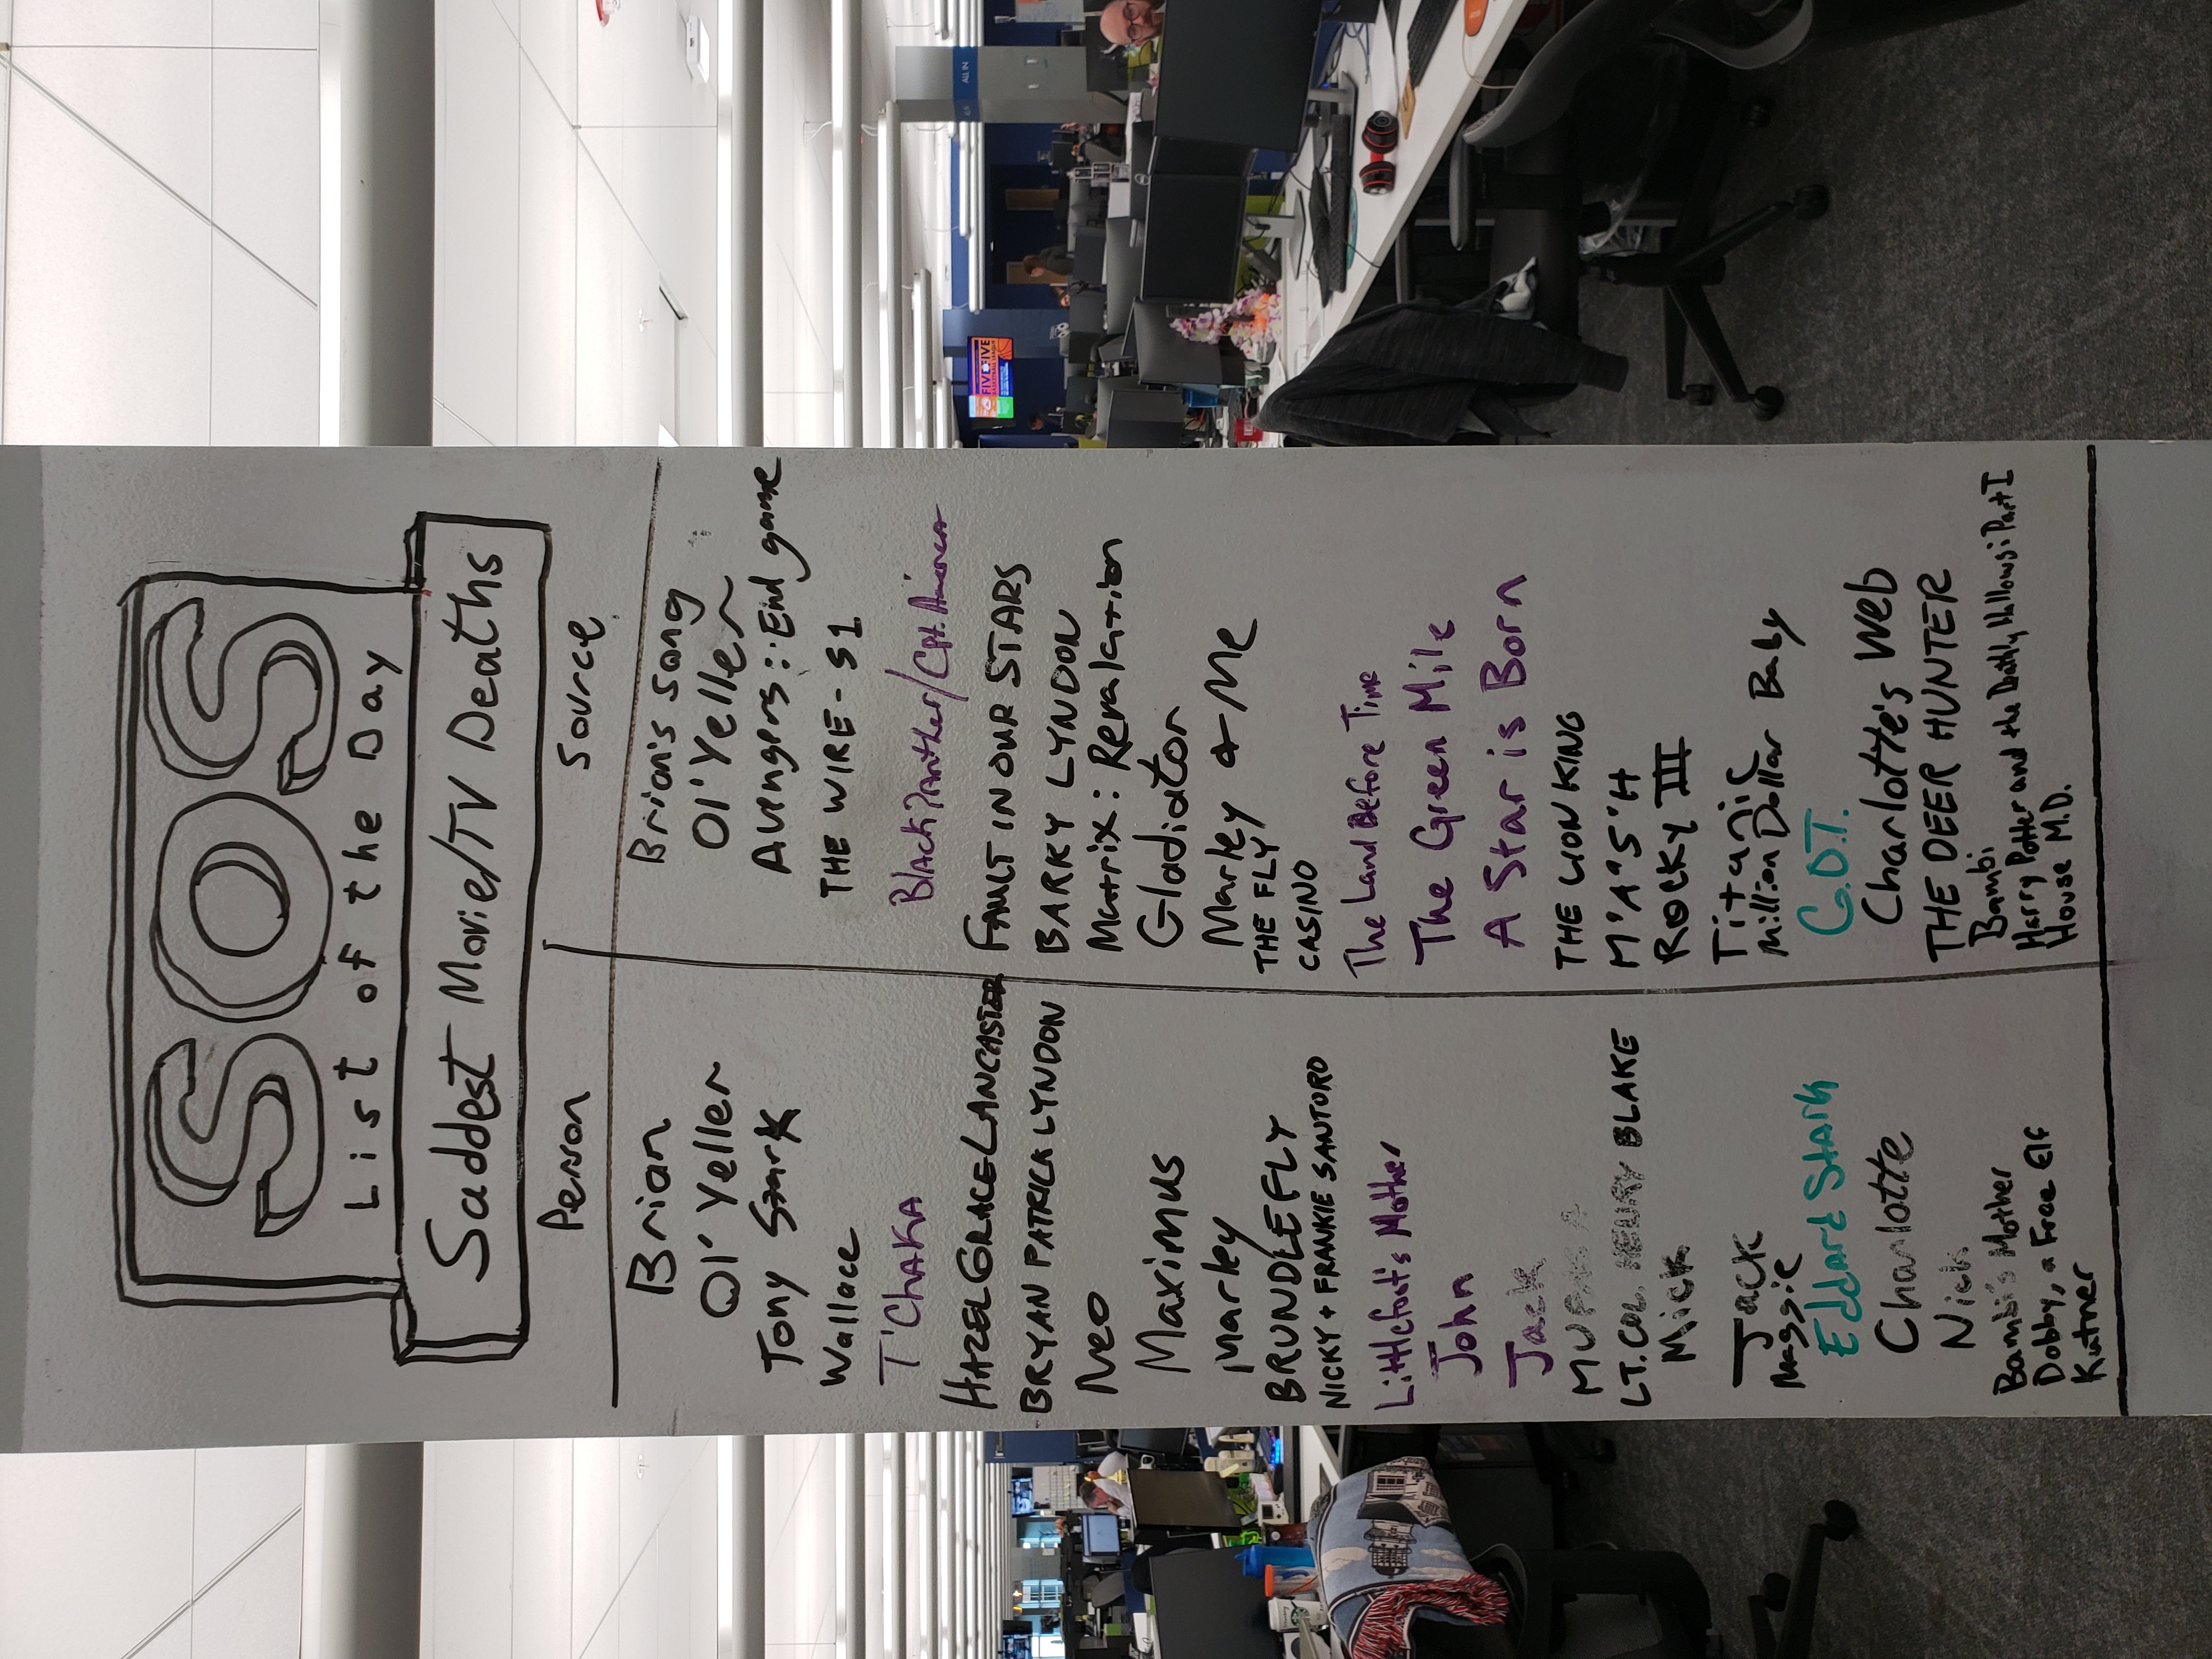 SOS
List of the Day
Saddest Movie/TV Deaths
Person Source
Brian Brian's Song
Ol' Yeller Ol' Yeller
Tony Stark Avengers: End game
Wallace THE WIRE - S1
T'ChAKA Black Panther/Cpt. America
HAZEL GRACE LANCASTER FAULT IN OUR STARS
BRYAN PATRICK LYNDON BARRY LYNDON
Neo Matrix: Revalation
Maximus Gladiator
Marley Marley & Me
BRUNDLEFLY THE FLY
NICKY + FRANKIE SANTORO CASINO
Littlefoot's Mother The Land Before Time
John The Green Mile
Jack A Star is Born
MUFASA THE LION KING
LT. COL. HENRY BLAKE M*A*S*H
Mick ROCKY III
Jack Titanic
Maggie Million Dollar Baby
Eddard Stark G.O.T.
Charlotte Charlotte's Web
Nick THE DEER HUNTER
Bambi's Mother Bambi
Dobby, a Free Elf Harry Potter and the Deathly Hallows: Part I
Kutner House M.D.
ALL IN
FIVE FIVE
BASKETBALL LEAGUE